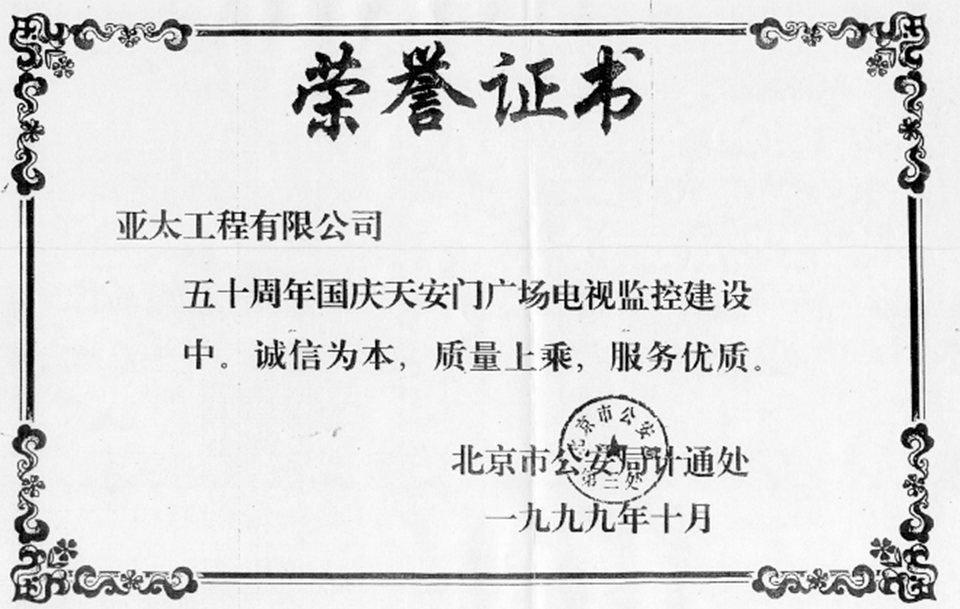 荣誉证书
亚太工程有限公司
五十周年国庆天安门广场电视监控建设
中。诚信为本，质量上乘，服务优质。
北京市公安
第三处
北京市公安局计通处
一九九九年十月